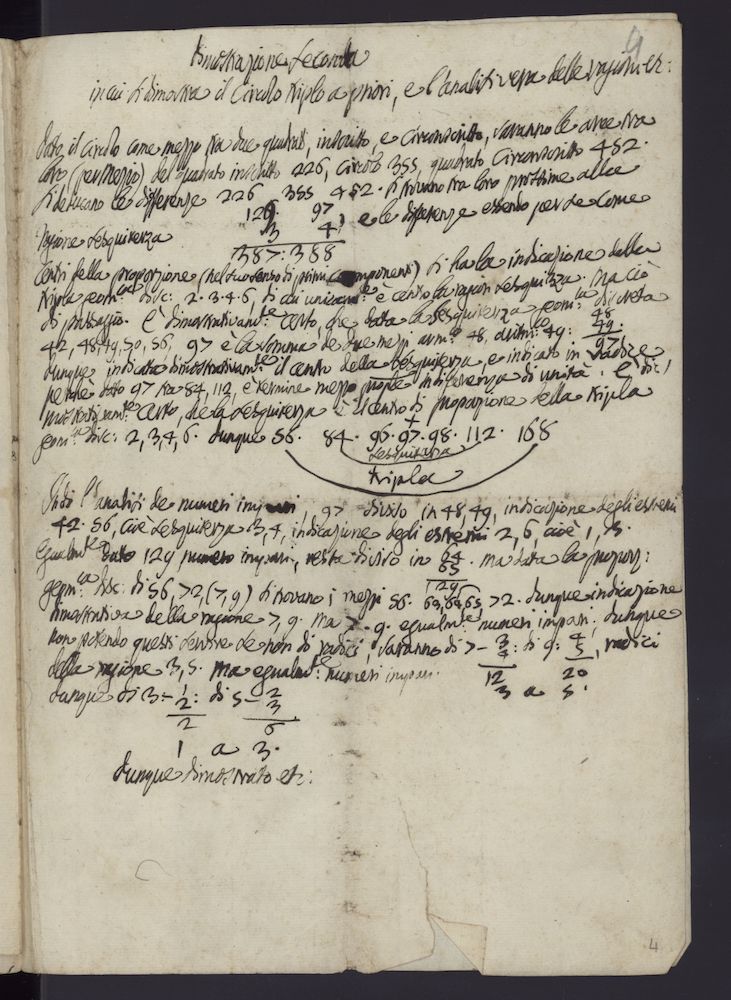 9
Dimostrazione seconda
in cui si dimostra il Circolo triplo a priori, e l'analisi vera delle ragioni etc:
Dato il circolo come mezzo tra due quadrati, inscritto, e circonscritto, saranno le aree tra
loro (per mezzo) del quadrato inscritto 226, circolo 355, quadrato circonscritto 452.
Si deducano le differenze 226 355 452. si trovano tra loro prossime alla
129. 97
3 4, e le differenze essendo per se come
ragione sesquiterza
387: 388
centri della proporzione (nel suo senso di primi componenti) si ha la indicazione della
tripla geom.ca disc: 2. 3. 4. 6, di cui unicam.te è centro la ragion sesquiterza. Ma ciò
di passaggio. È dimostrativam.te certo, che data la sesquiterza geom.ca discreta
48
42, 48, 49, 50, 56, 97 è la somma de due mezzi arm.co 48, aritm.co 49:
49.
97
dunque indicata dimostrativam.te il centro della sesquiterza, e indicato in radice
perchè dato 97 tra 84, 112, è termine mezzo con differenza di unità. È di-
mostrativam.te certo, che la sesquiterza è il centro di proporzione della tripla
geom.ca disc: 2, 3, 4, 6. dunque 56. 84. 96. 97. 98. 112. 168
sesquiterza
tripla
Indi l'analisi de numeri impari, 97 diviso in 48, 49, indicazione degli estremi
42. 56, cioè sesquiterza 3, 4, indicazione degli estremi 2, 6, cioè 1, 3.
Egualm.te dato 129 numero impari, resta diviso in 64 . ma data la proporz:
65
129
geom.ca disc: di 56, 72 (7, 9) si trovano i mezzi 56. 63, 64, 65, 72. dunque indicazione
dimostrativa della ragione 7, 9. ma 7. 9. egualm.te numeri impari. dunque
non potendo questi se non di radici, saranno di 7 - 3 : di 9: 4 , radici
4 5
della ragione 3, 5. ma egualm.te numeri impari. 12 20
3 a 5.
dunque di 3 - 1 : di 5 - 2
2 3
2 6
1 a 3.
dunque dimostrato etc:
4